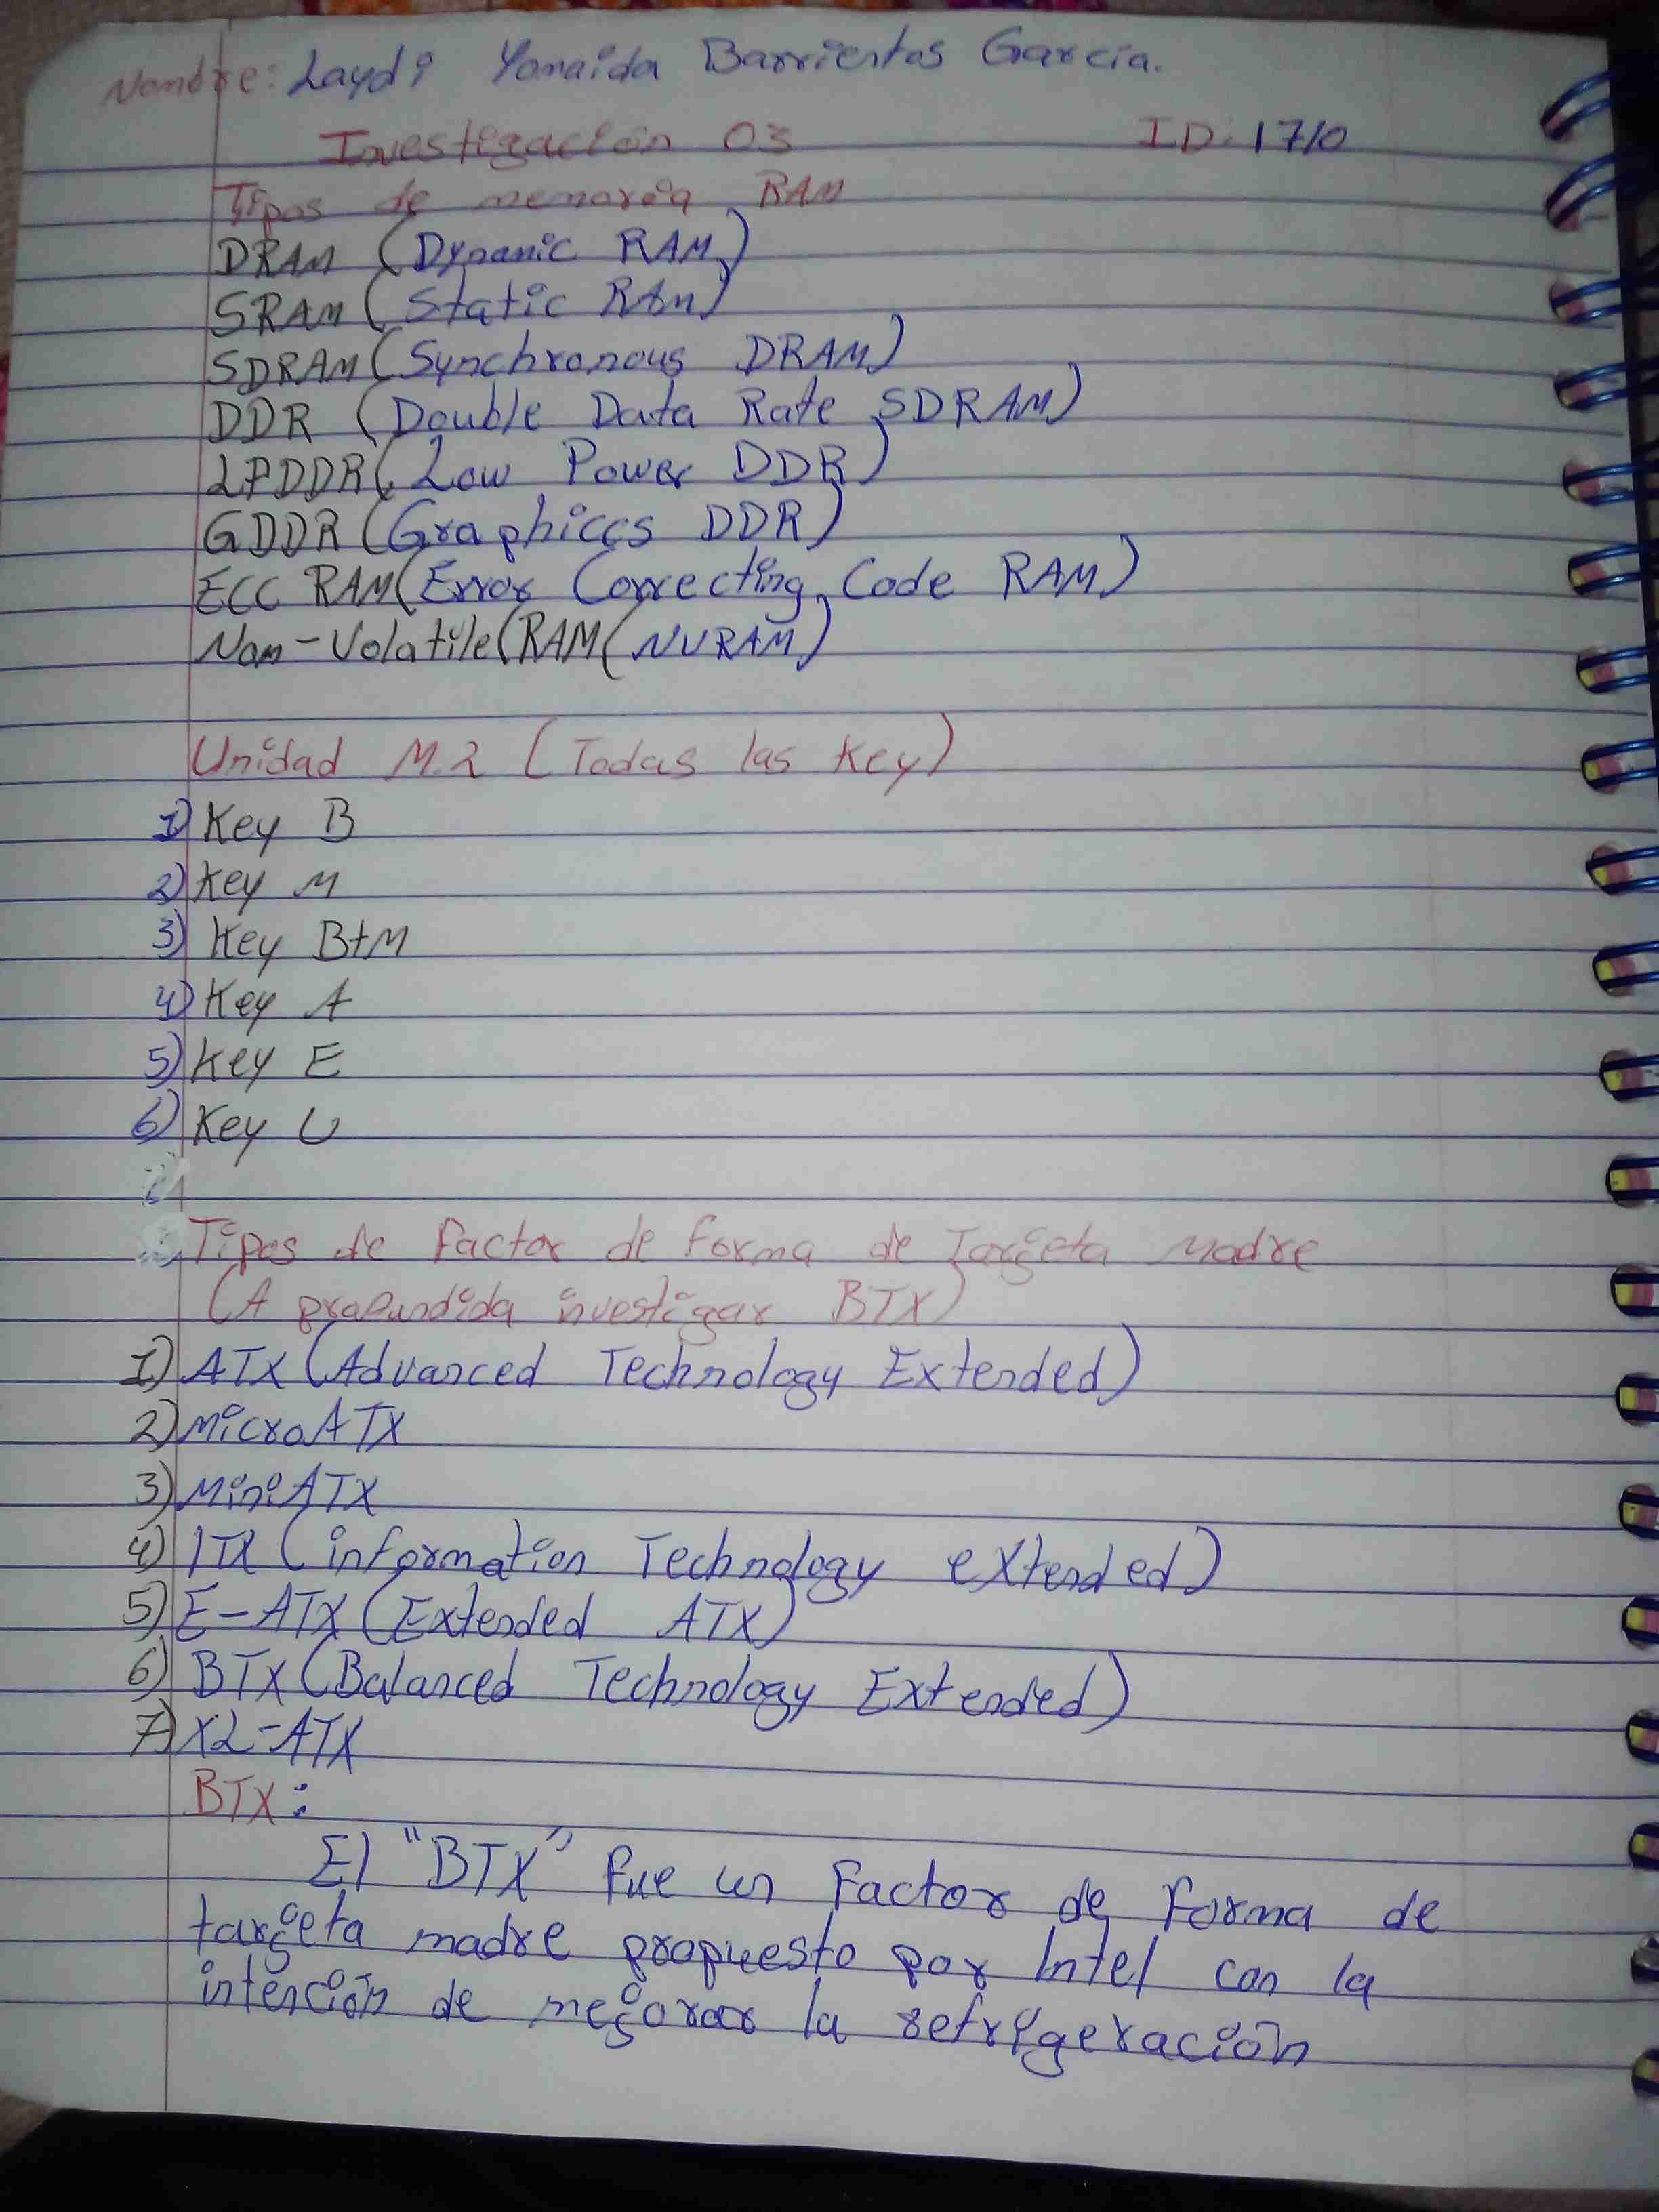 Nombre: Laydi Yomaida Barrientos García.
Investigación 03 ID: 1710
Tipos de memoria RAM
DRAM (Dynamic RAM)
SRAM (Static RAM)
SDRAM (Synchronous DRAM)
DDR (Double Data Rate SDRAM)
LPDDR (Low Power DDR)
GDDR (Graphiccs DDR)
ECC RAM (Error Correcting Code RAM)
Nom-Volatile (RAM (NVRAM)
Unidad M.2 (Todas las Key)
1) Key B
2) Key M
3) Key B+M
4) Key A
5) Key E
6) Key U
Tipos de factor de forma de Targeta Madre
(A profundida investigar BTX)
1) ATX (Advanced Technology Extended)
2) MicroATX
3) MiniATX
4) ITX (information Technology eXtended)
5) E-ATX (Extended ATX)
6) BTX (Balanced Technology Extended)
7) XL-ATX
BTX:
El "BTX" fue un factor de forma de
targeta madre propuesto por Intel con la
intención de mejorar la refrigeración